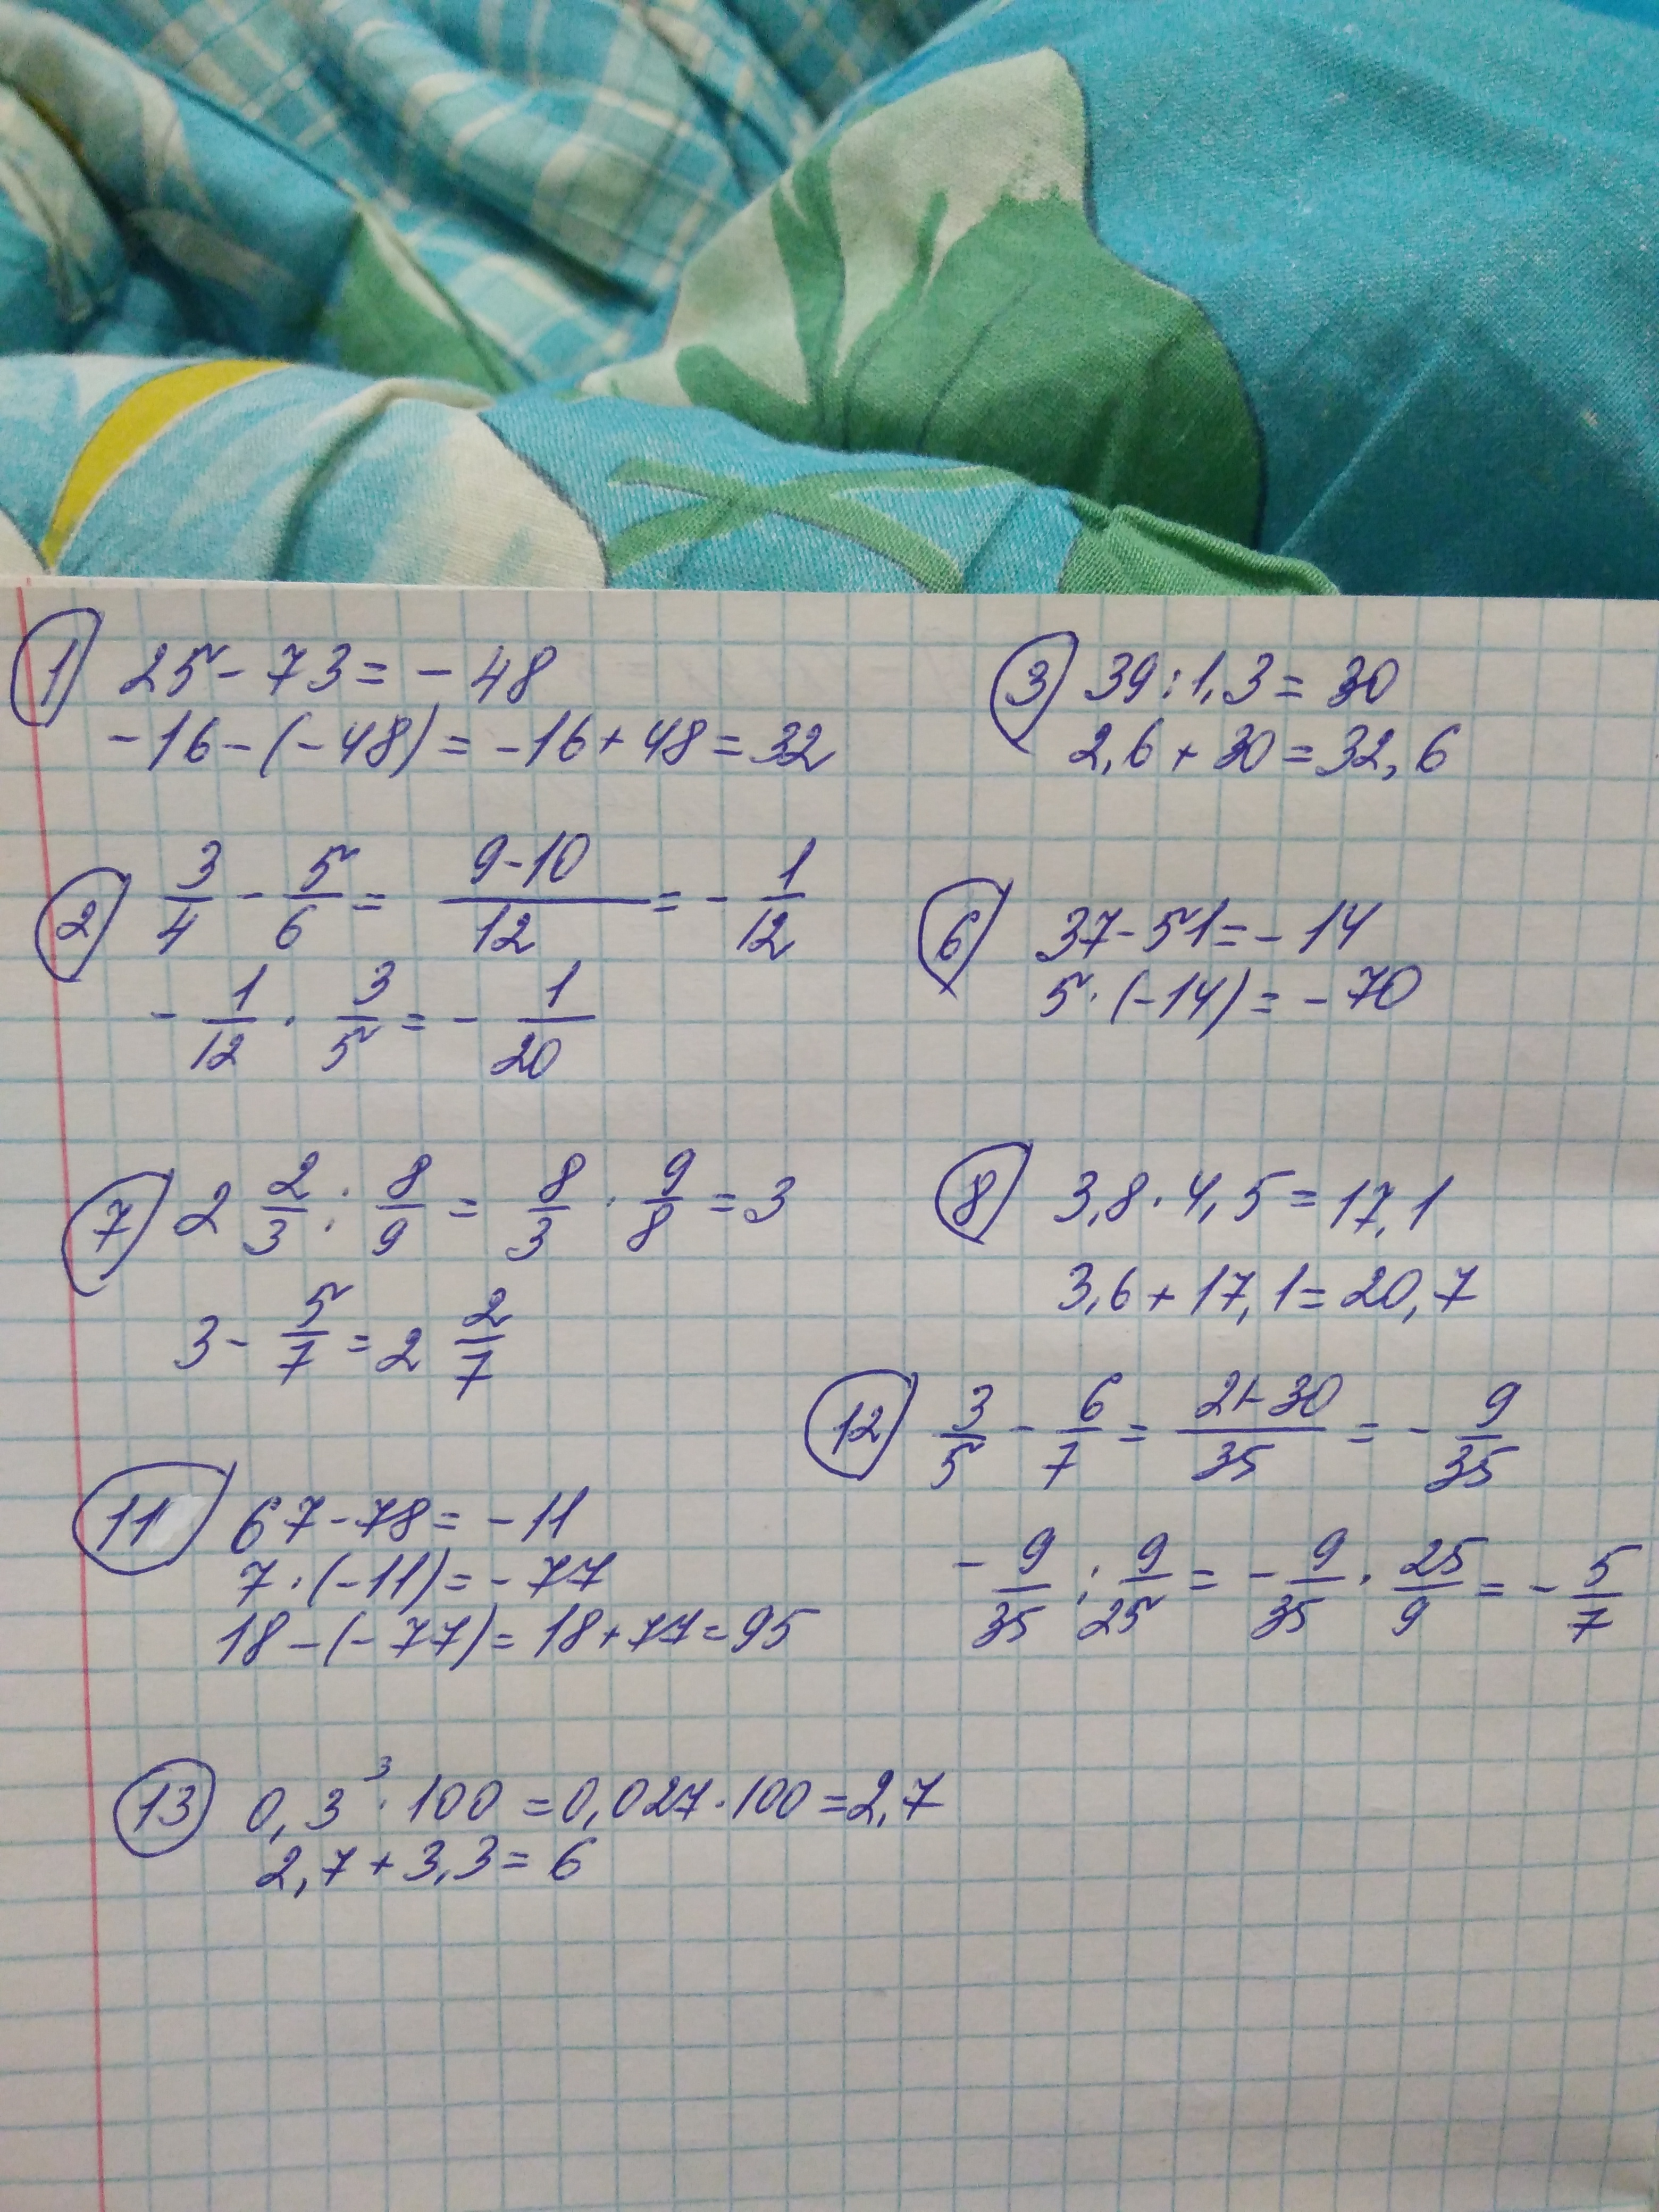 1) 25 - 73 = - 48
-16 - (-48) = -16 + 48 = 32
3) 39 : 1,3 = 30
2,6 + 30 = 32,6
2) 3/4 - 5/6 = (9-10)/12 = - 1/12
- 1/12 · 3/5 = - 1/20
6) 37 - 51 = - 14
5 · (-14) = - 70
7) 2 2/3 : 8/9 = 8/3 · 9/8 = 3
3 - 5/7 = 2 2/7
8) 3,8 · 4,5 = 17,1
3,6 + 17,1 = 20,7
12) 3/5 - 6/7 = (21-30)/35 = - 9/35
- 9/35 : 9/25 = - 9/35 · 25/9 = - 5/7
11) 67 - 78 = - 11
7 · (-11) = - 77
18 - (- 77) = 18 + 77 = 95
13) 0,3³ · 100 = 0,027 · 100 = 2,7
2,7 + 3,3 = 6